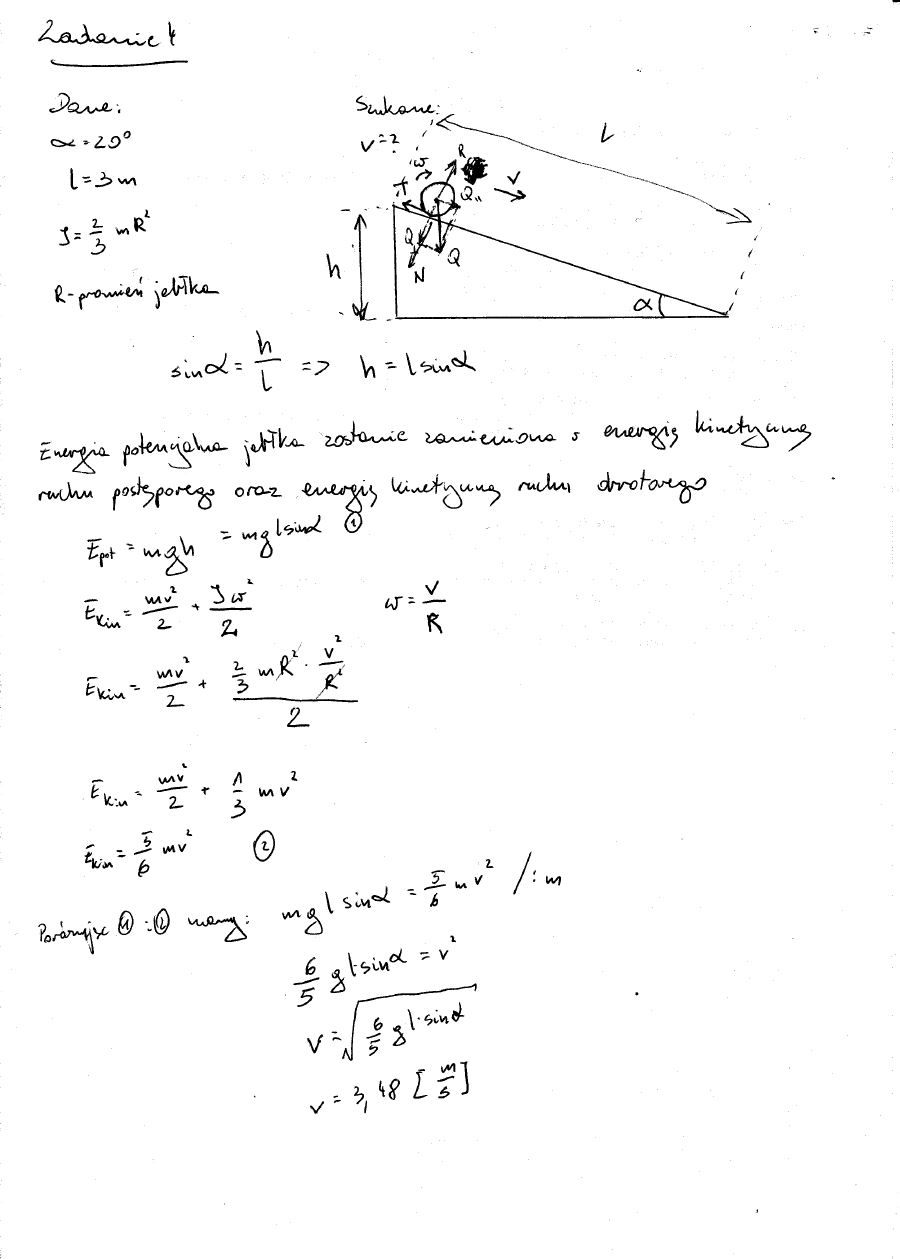 Zadanie 4
Dane:
α = 20°
l = 3 m
J = 2/3 mR²
R - promień jabłka
Szukane:
v = ?
ω
R
T
Q_II
v
l
Q
Q
N
h
α
sinα = h/l => h = l sinα
Energia potencjalna jabłka zostanie zamieniona s energię kinetyczną
ruchu postępowego oraz energię kinetyczną ruchu obrotowego
E_pot = mgh = mg l sinα ①
E_kin = mv²/2 + Jω²/2 ω = v/R
E_kin = mv²/2 + (2/3 mR² · v²/R²)/2
E_kin = mv²/2 + 1/3 mv²
E_kin = 5/6 mv² ②
Porównując ① i ② mamy: mg l sinα = 5/6 mv² /: m
6/5 g l·sinα = v²
v = √(6/5 g l·sinα)
v = 3,48 [m/s]